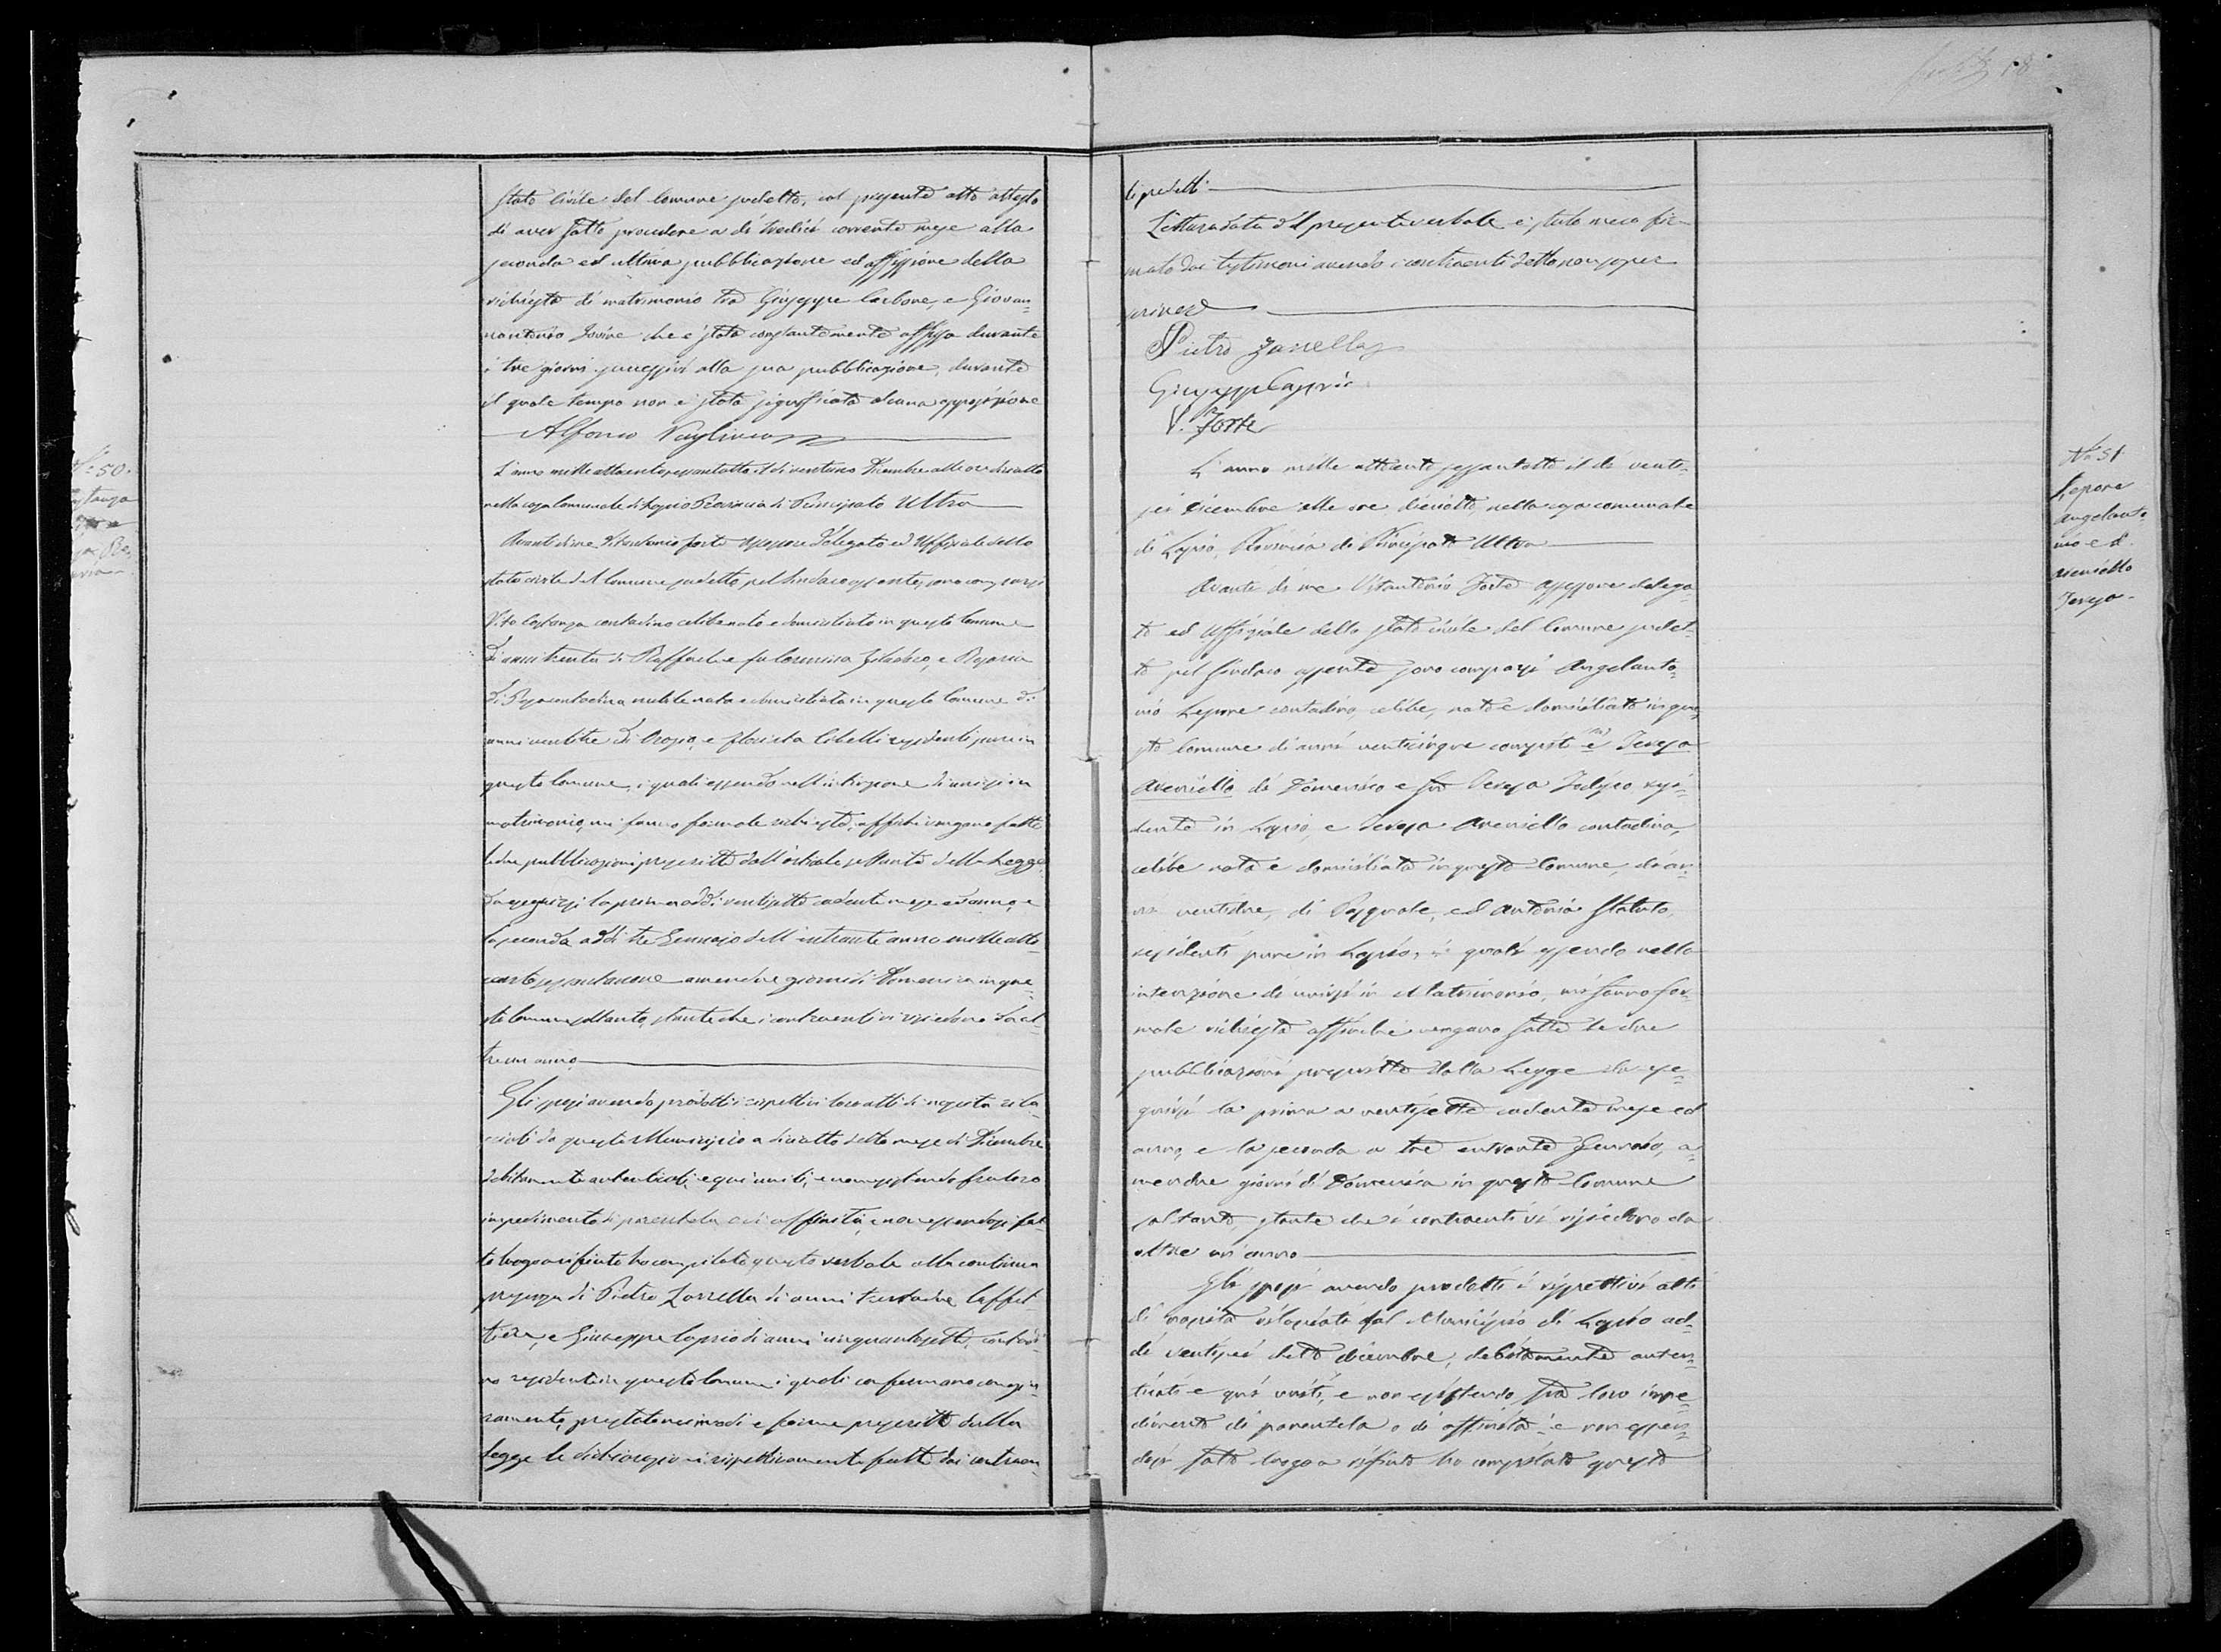 Stato Civile del Comune sudetto, col presente atto attesto
di aver fatto procedere a dì tredici corrente mese alla
seconda ed ultima pubblicazione ed affissione della
richiesta di matrimonio tra Giuseppe Carbone, e Giovan=
nantonia Iovine che è stata constantemente affissa durante
i tre giorni successivi alla sua pubblicazione, durante
il quale tempo non è stata significata alcuna opposizione
Alfonso
N.º 50.
L'anno mille ottocento sessantotto il dì ventuno Dicembre alle ore diciotto
nella casa Comunale di Lapio Provincia di Principato Ultra
Avanti di me Vitantonio Forte Assessore Delegato ed Uffiziale dello
stato civile del Comune sudetto, pel Sindaco assente, sono comparsi
Vito Costanza contadino celibe nato e domiciliato in questo Comune
di anni trenta di Raffaele e fu Carmina e Rosaria
contadina nubile nata e domiciliata in questo Comune di
anni ventitre di Orazio, e Florinda Cibelli residenti pure in
questo Comune, i quali essendo nell'intenzione di unirsi in
matrimonio, mi fanno formale richiesta, affinchè vengano fatte
le due pubblicazioni prescritte dall'articolo settanta della Legge,
da eseguirsi la prima addì ventisette cadente mese ed anno, e
la seconda addì tre Gennajo dell'entrante anno mille otto
cento sessantanove amendue giorni di Domenica in que=
sto Comune soltanto, stante che i contraenti vi risiedono da ol=
tre un anno
Gli sposi avendo prodotti i rispettivi loro atti di nascita rila=
sciati da questo Municipio a diciotto detto mese di Dicembre
debitamente autenticati, e qui uniti, e non esistendo fra loro
impedimento di parentela o di affinità, e non essendosi fat=
to luogo a rifiuto ho compilato questo verbale alla continua
presenza di Pietro Zarrella di anni trentadue Caffet=
tiere, e Giuseppe Caprio di anni cinquantasette, contadi=
no residenti in questo Comune i quali confermano con giu=
ramento, prestato nei modi e forme prescritte dalla
Legge le dichiarazioni rispettivamente fatte dai contraen=
ti predetti
Lettura data del presente verbale è stato meco fir=
mato dai testimoni avendo i contraenti detto non saper
scrivere
Pietro Zarrella
Giuseppe Caprio
V. Forte
N.º 51
Lepore
Angelanto=
nio ed
Aveniello
Teresa
L'anno mille ottocento sessantotto il dì venti=
sei Dicembre alle ore diciotto, nella casa comunale
di Lapio, Provincia di Principato Ultra
Avanti di me Vitantonio Forte Assessore delega=
to ed Uffiziale dello stato civile del Comune sudet=
to pel Sindaco assente sono comparsi Angelanto=
nio Lepore contadino, celibe, nato e domiciliato in que=
sto Comune di anni venticinque compiti e Teresa
Aveniello di Domenico e fu Teresa resi=
dente in Lapio, e Teresa Aveniello contadina,
celibe nata e domiciliata in questo Comune, di an=
ni ventidue, di Pasquale, ed Antonia Statuto,
residenti pure in Lapio, i quali essendo nella
intenzione di unirsi in Matrimonio, mi fanno for=
male richiesta affinchè vengano fatte le due
pubblicazioni prescritte dalla Legge da ese=
guirsi la prima a ventisette cadente mese ed
anno, e la seconda a tre entrante Gennaio, a=
mendue giorni di Domenica in questo Comune
soltanto, stante che i contraenti vi risiedono da
oltre un anno
Gli sposi avendo prodotti i rispettivi atti
di nascita rilasciati dal Municipio di Lapio ad=
dì ventisei detto dicembre, debitamente auten=
ticati e qui uniti, e non esistendo fra loro impe=
dimento di parentela o di affinità e non essen=
dosi fatto luogo a rifiuto ho compilato questo